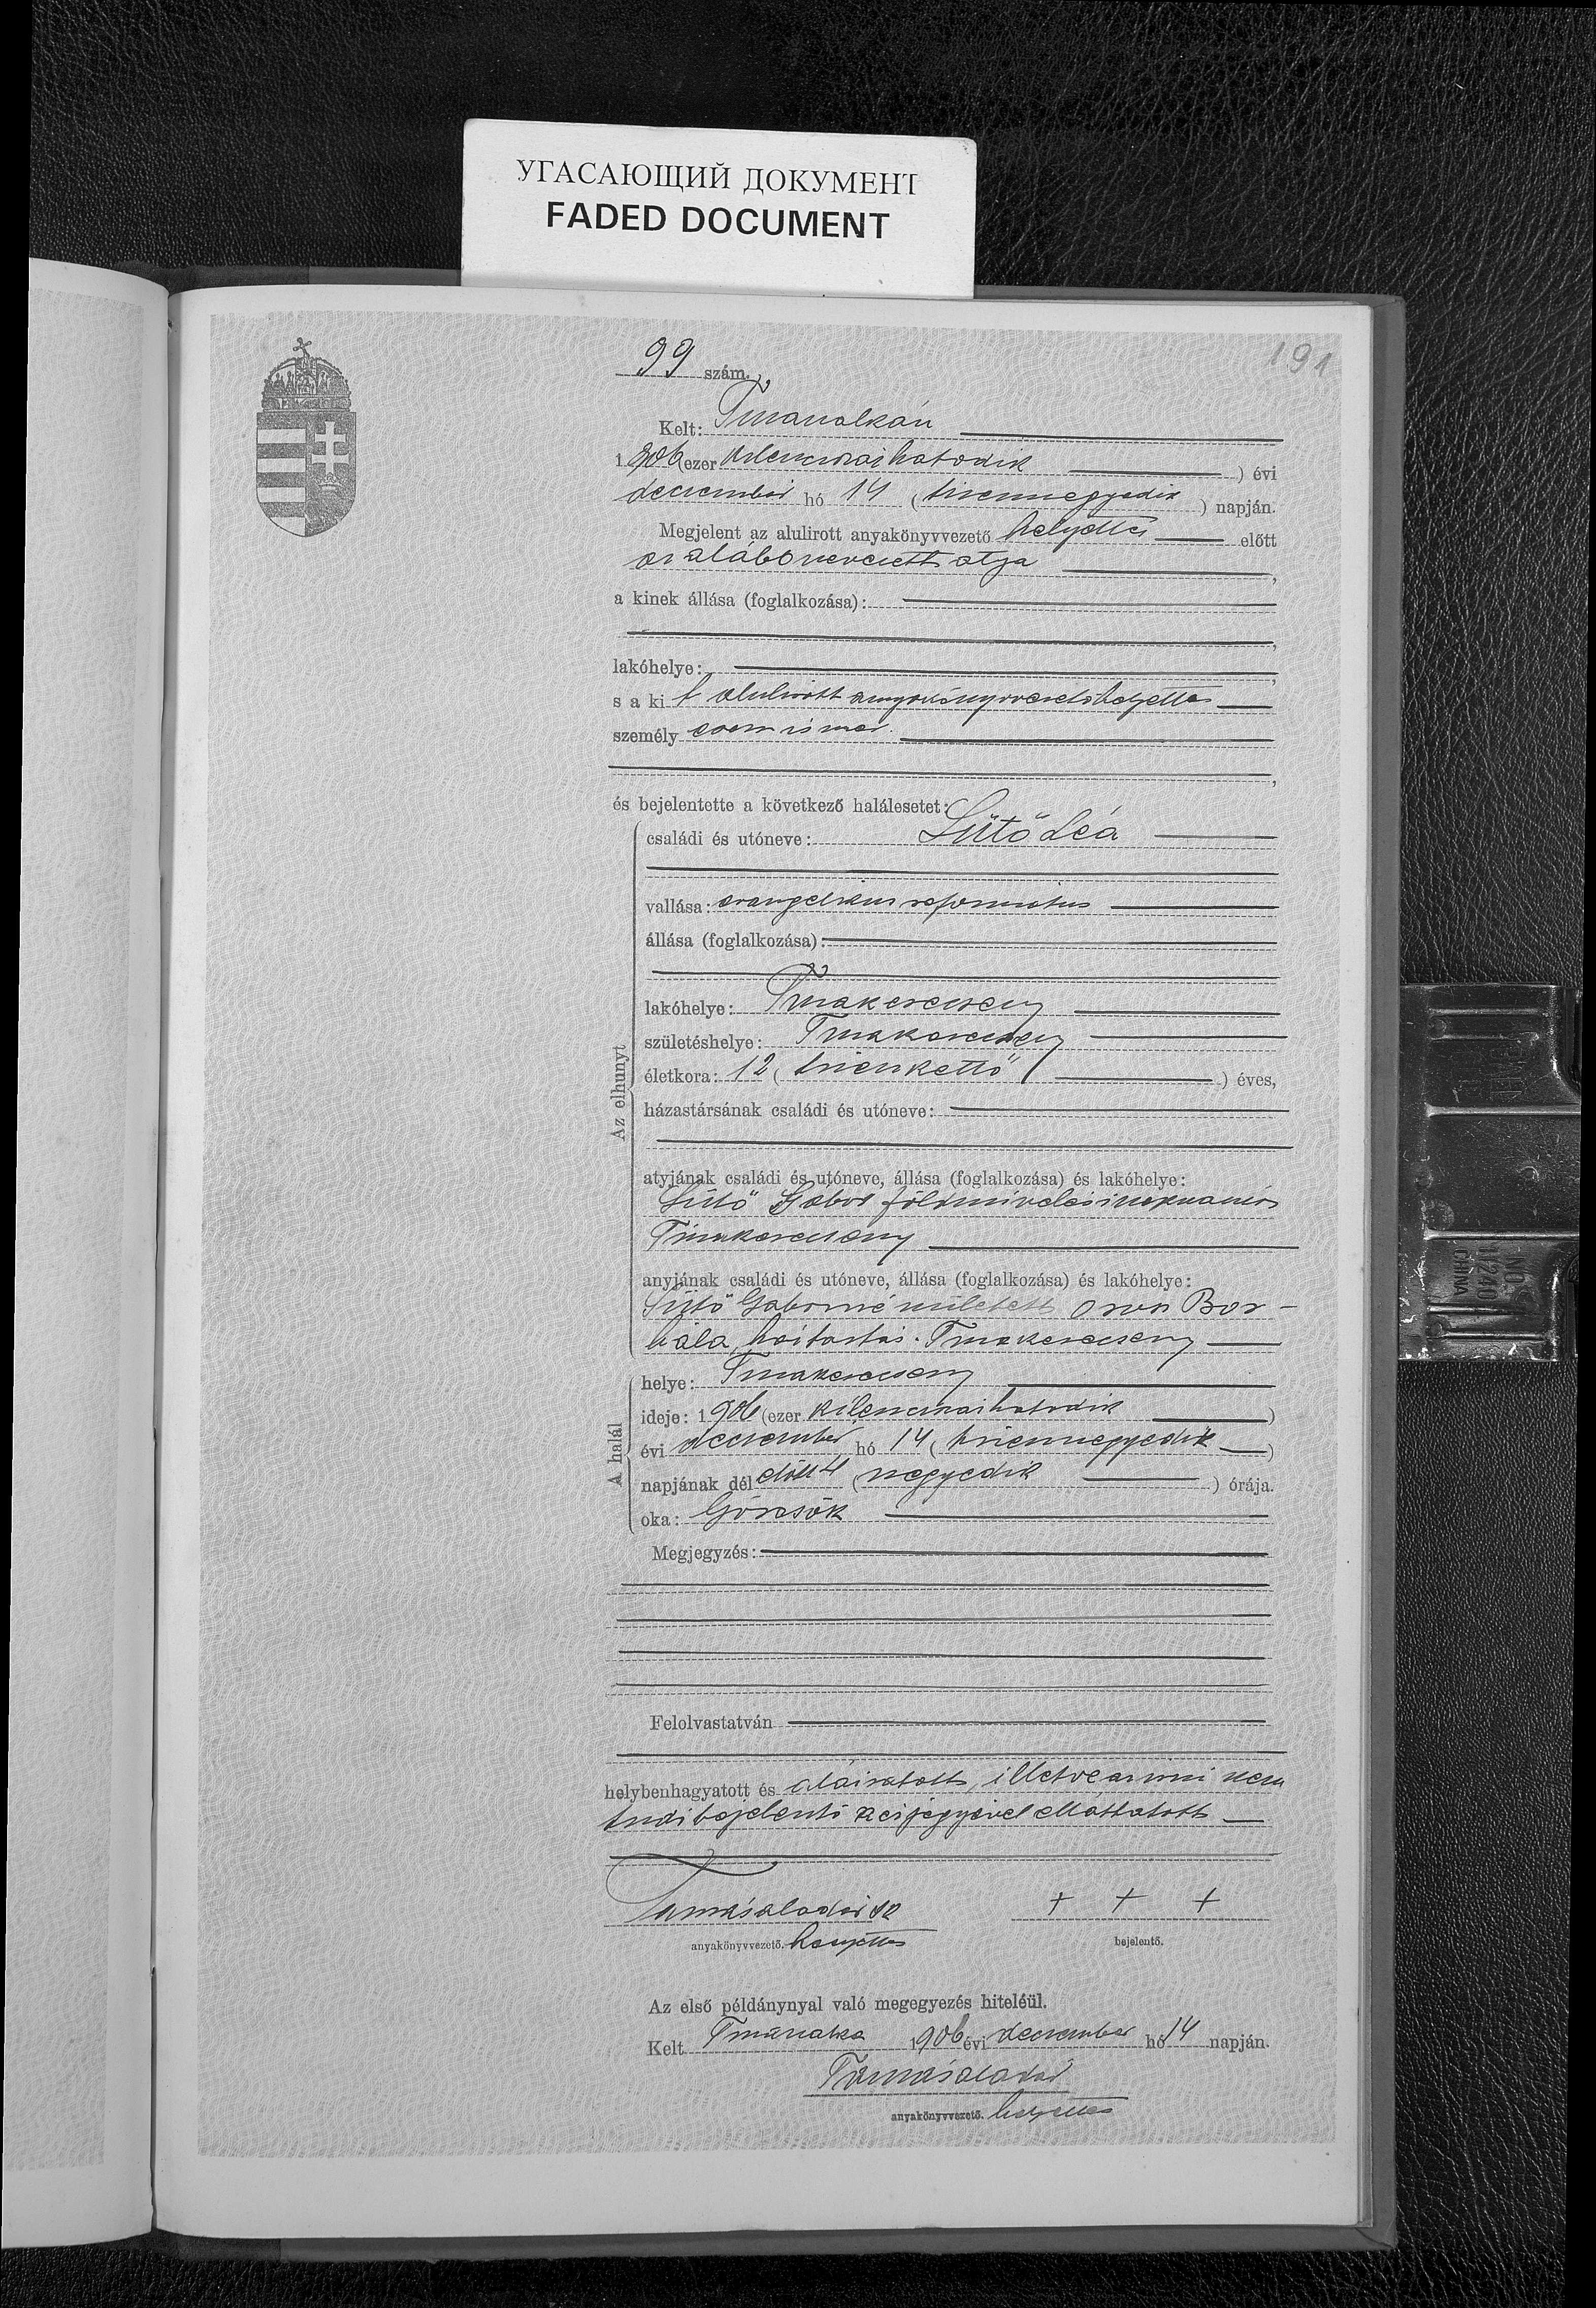 УГАСАЮЩИЙ ДОКУМЕНТ
FADED DOCUMENT
191
99 szám.
Kelt: Tmarialkán
1906 (ezer kilencszázhatodik ) évi
december hó 14 ( tizennegyedik ) napján.
Megjelent az alulirott anyakönyvvezető helyettes előtt
az alább nevezett atyja ,
a kinek állása (foglalkozása):
,
lakóhelye: ,
s a kit alulirott anyakönyvvezetőhelyettes
személyesen ismer.
,
és bejelentette a következő halálesetet:
Az elhunyt
családi és utóneve: Sütő Leá
vallása: evangelikus református
állása (foglalkozása):
lakóhelye: Tiszakerecseny
születéshelye: Tiszakerecseny
életkora: 12 ( tizenkettő ) éves,
házastársának családi és utóneve:
atyjának családi és utóneve, állása (foglalkozása) és lakóhelye:
Sütő Gábor földmivelési napszámos
Tiszakerecseny
anyjának családi és utóneve, állása (foglalkozása) és lakóhelye:
Sütő Gáborné született Oros Bor-
bála, háztartás. Tiszakerecseny
A halál
helye: Tiszakerecseny
ideje: 1906 (ezer kilencszázhatodik )
évi december hó 14 ( tizennegyedik )
napjának délelőtt 4 ( negyedik ) órája.
oka: Görcsök
Megjegyzés:
Felolvastatván
helybenhagyatott és aláiratott, illetve az irni nem
tudó bejelentő kézjegyével elláttatott
Tamás Aladár sk
anyakönyvvezető. helyettes
+ + +
bejelentő.
Az első példánynyal való megegyezés hiteléül.
Kelt 1906 évi december hó 14 napján.
Tamás Aladár
anyakönyvvezető. helyettes
NO
11240
CHINA